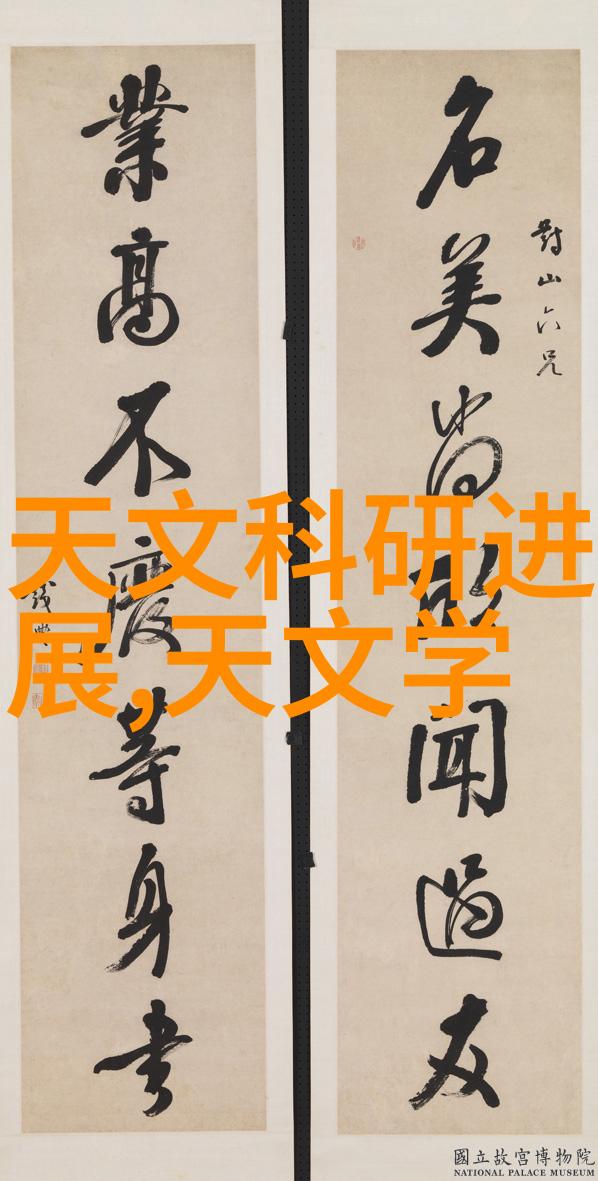 對山六兄
名美尚欣聞過友
業高不廢等身書
天文科研进
展,天文学
國立故宮博物院
NATIONAL PALACE MUSEUM